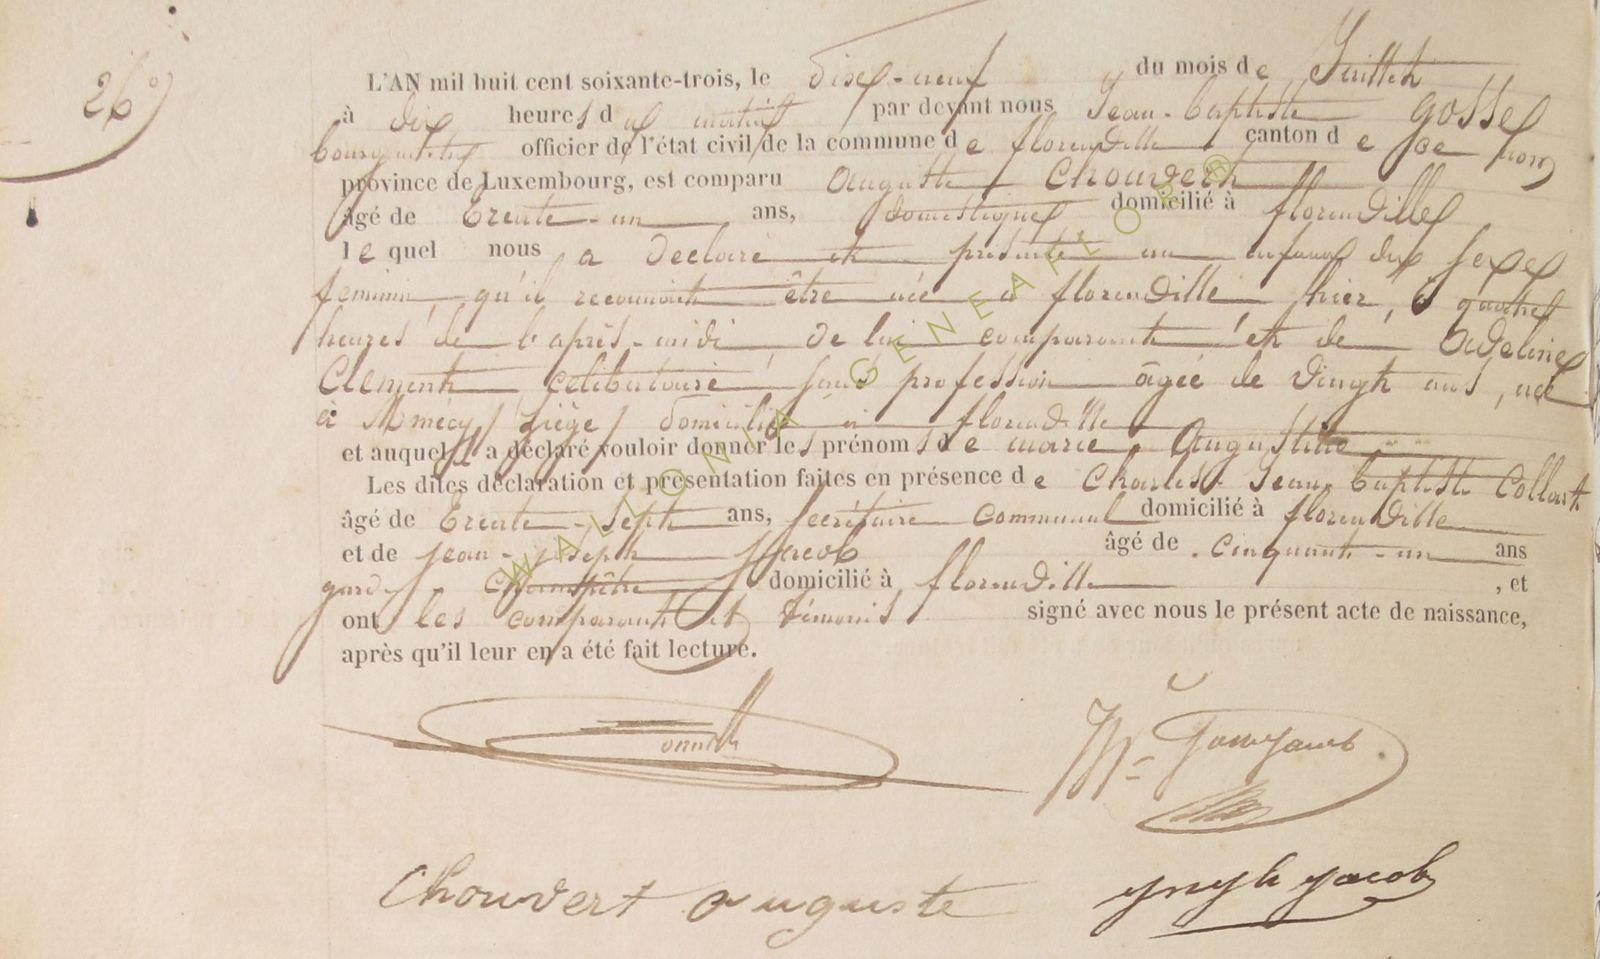 26°
L'AN mil huit cent soixante-trois, le dixe-neuf du mois de Juillet
à dix heures du matin par devant nous Jean-Baptiste Gosse
bourgmestre officier de l'état civil de la commune de florenville, canton de
province de Luxembourg, est comparu Auguste Chouvert
âgé de trente-un ans, domestique domicilié à florenville
lequel nous a déclaré et présenté un enfant du sexe
feminin, qu'il reconnoit être née à florenville, hier, à quatre
heures de l'après-midi, de lui comparant et de Adeline
Clement célibataire sans profession âgée de vingt ans, née
à Momecy (Liège) domiciliée à florenville
et auquel il a déclaré vouloir donner les prénoms de marie, Augustine
Les dites déclaration et présentation faites en présence de Charles-Jean-baptiste Collart
âgé de trente-sept ans, secrétaire communal domicilié à florenville
et de jean-joseph jacob âgé de cinquante-un ans
garde champêtre domicilié à florenville, et
ont les comparant et témoins signé avec nous le présent acte de naissance,
après qu'il leur en a été fait lecture.
Chouvert auguste
jacob
WALLONIA-GENEAFLOR®